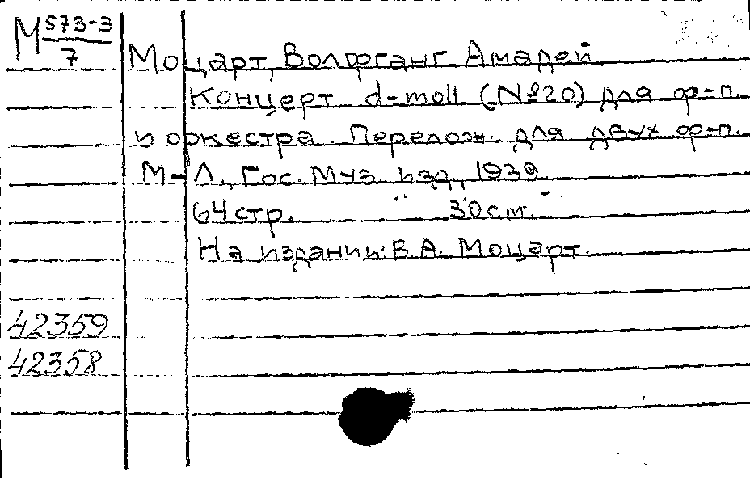 М 573-3
7
Моцарт, Вольфганг Амадей
Концерт d-moll (№20) для ф-п.
и оркестра. Перелож. для двух ф-п.
М-Л., Гос. Муз. изд., 1939.
64 стр. 30 см.
На издании: В.А. Моцарт.
42359
42358